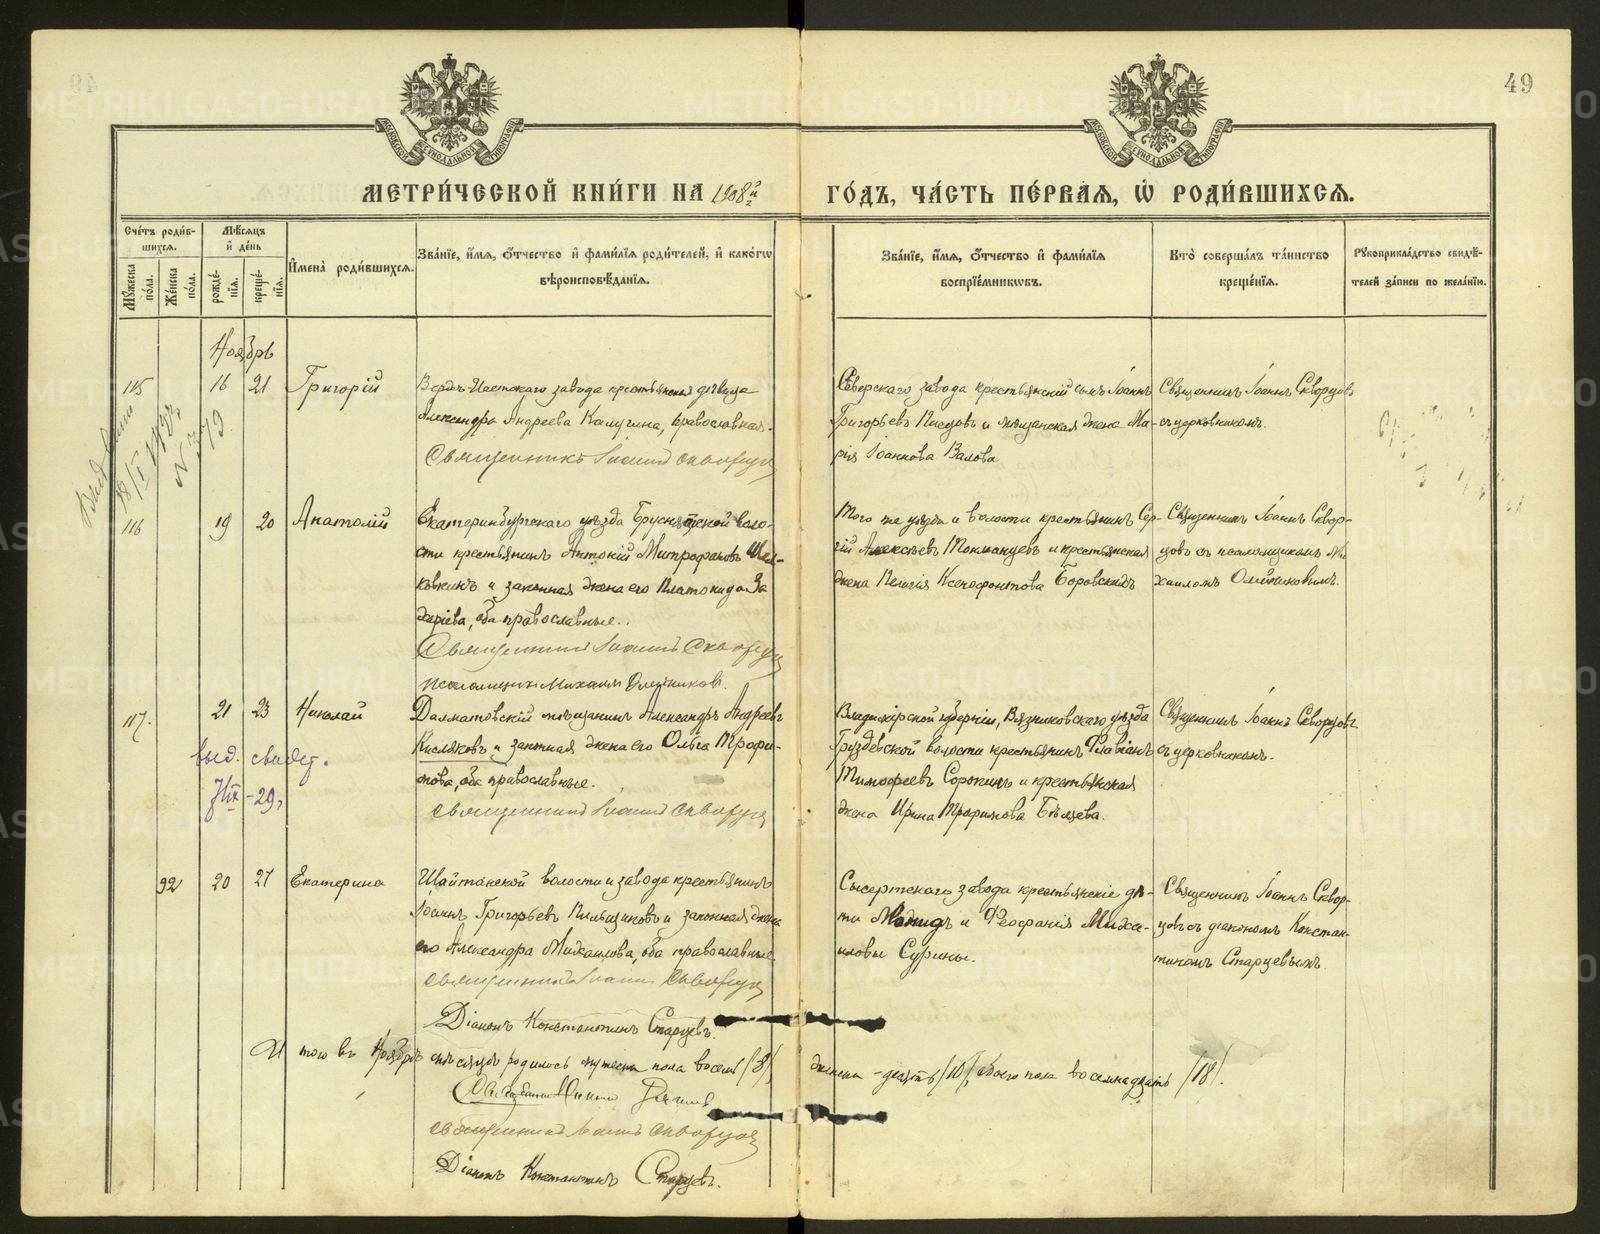 49
МЕТРИ́ЧЕСКОЙ КНИ́ГИ НА 1908й ГО́ДЪ, ЧА́СТЬ ПЕ́РВАѦ, Ѡ҆ РОДИ́ВШИХСѦ.
Сче́тъ роди́вшихсѧ.
Мꙋ́жеска по́ла.
Же́нска по́ла.
Мѣ́сѧцъ и҆ де́нь
рожде́нїѧ.
креще́нїѧ.
И҆мена̀ роди́вшихсѧ.
Зва́нїе, и҆́мѧ, ѻ҆́тчество и҆ фами́лїѧ роди́телей, и҆ како́гѡ
вѣроисповѣ́данїѧ.
Зва́нїе, и҆́мѧ, ѻ҆́тчество и҆ фами́лїѧ
воспрїе́мникѡвъ.
Кто̀ соверша́лъ та́инство
креще́нїѧ.
Рꙋкоприкла́дство свидѣ́-
телей за́писи по жела́нїю.
Ноябрь
115 16 21 Григорій
Верхъ Исетскаго завода крестьянская дѣвица
Александра Андреева Калугина, православная.
Священникъ Іоаннъ Скворцовъ
Сѣверскаго завода крестьянскій сынъ Іоаннъ
Григорьевъ и мѣщанская жена Ма-
рія Іоаннова Валова
Священникъ Іоаннъ Скворцовъ
съ церковникомъ.
116 19 20 Анатолій
Екатеринбургскаго уѣзда Бруснятской воло-
сти крестьянинъ Антоній Митрофановъ Шел-
ковкинъ и законная жена его Платонида За
харіева, оба православные.
Священникъ Іоаннъ Скворцовъ
Псаломщикъ Михаилъ Олейниковъ.
Того же уѣзда и волости крестьянинъ Сер-
гій Алексѣевъ Токманцевъ и крестьянская
жена Пелагія Ксенофонтова Боровскихъ
Священникъ Іоаннъ Сквор-
цовъ съ псаломщикомъ Ми
хаиломъ Олейниковымъ.
117. 21 23 Николай
выд. свидет.
-29,
Далматовскій мѣщанинъ Александръ Андреевъ
Кисляковъ и законная жена его Ольга Трофи-
мова, оба православные.
Священникъ Іоаннъ Скворцовъ
Владимірской губерніи, Вязниковскаго уѣзда
Груздевской волости крестьянинъ Флавіанъ
Тимофеевъ Сорокинъ и крестьянская
жена Ирина Трофимова Бѣляева.
Священникъ Іоаннъ Скворцовъ
съ церковникомъ.
92 20 27 Екатерина
Шайтанской волости и завода крестьянинъ
Іоаннъ Григорьевъ Пильщиковъ и законная жена
его Александра Михаилова, оба православные.
Священникъ Іоаннъ Скворцовъ
Діаконъ Константинъ Старцевъ.
Сысертскаго завода крестьянскіе дѣ-
ти и Феофанія Миха-
иловы Сурины.
Священникъ Іоаннъ Сквор-
цовъ съ діакономъ Констан-
тиномъ Старцевымъ
И того въ Ноябрѣ мѣсяцѣ родилось мужеска пола восемь (8), женска - десять (10), обоего пола восемнадцать (18).
Священникъ Іоаннъ Скворцовъ
Діаконъ Константинъ Старцевъ.
METRIKI.GASO-URAL.RU